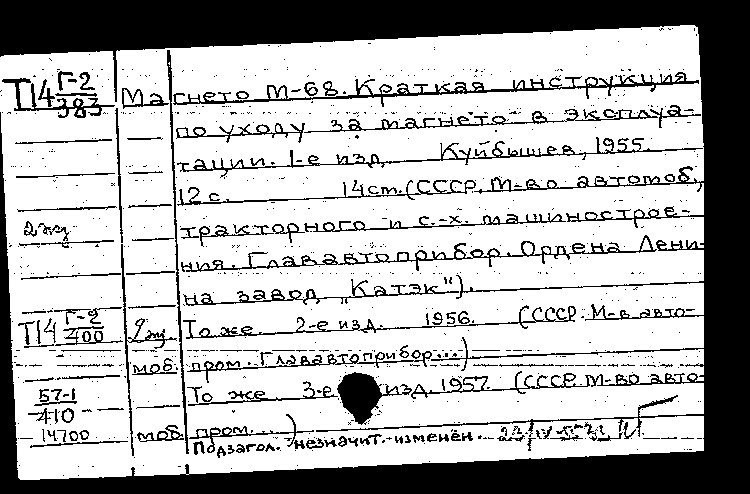 Т14 Г-2/383 Магнето М-68. Краткая инструкция
по уходу за магнето в эксплуа-
тации. 1-е изд. Куйбышев, 1955.
12 с. 14 см. (СССР. М-во автомоб.,
2 экз тракторного и с.-х. машинострое-
ния. Глававтоприбор. Ордена Лени-
на завод „Катэк").
Т14 Г-2/400 2 экз. То же. 2-е изд. 1956. (СССР. М-в авто-
моб. пром. Глававтоприбор...)
57-1/410 То же 3-е изд. 1957. (СССР. М-во авто-
14700 моб. пром....)
Подзагол. незначит. изменён. 23/IV-55